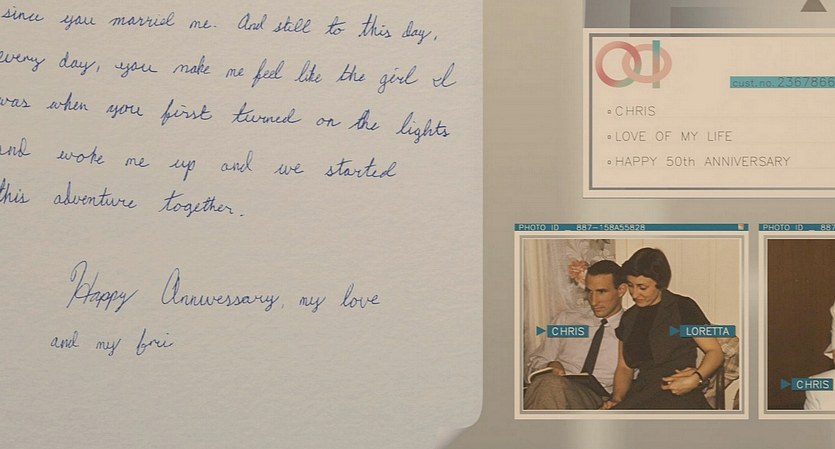 since you married me. And still to this day,
every day, you make me feel like the girl I
was when you first turned on the lights
and woke me up and we started
this adventure together.
Happy Anniversary, my love
and my fri
cust. no. 2367866
CHRIS
LOVE OF MY LIFE
HAPPY 50th ANNIVERSARY
PHOTO ID _ 887-158A55828
CHRIS
LORETTA
PHOTO ID _ 883
CHRIS